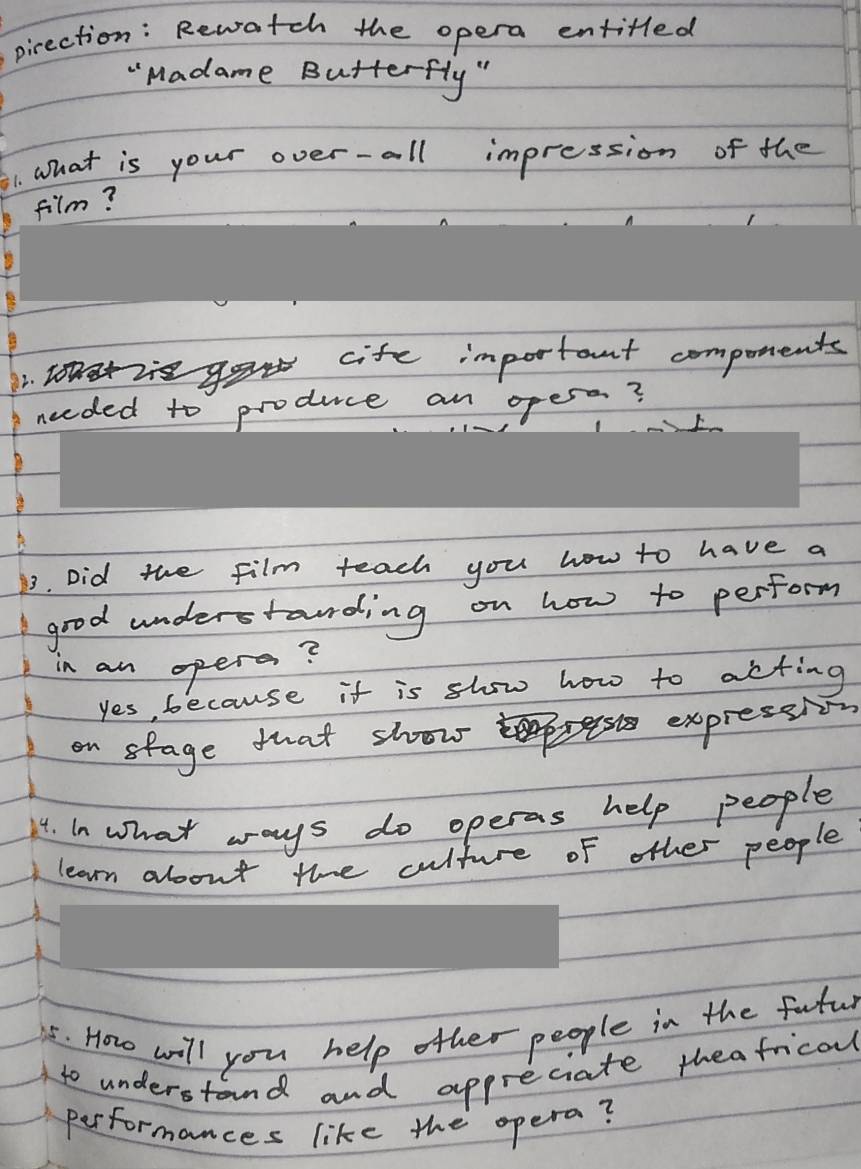 Direction: Rewatch the opera entitled
"Madame Butterfly"
1. What is your over-all impression of the
film?
2. cite important components
needed to produce an opera?
3. Did the film teach you how to have a
good understanding on how to perform
in an opera?
yes, because it is show how to akting
on stage that show expression
4. In what ways do operas help people
learn about the culture of other people
5. How will you help other people in the futur
to understand and appreciate theatrical
performances like the opera?